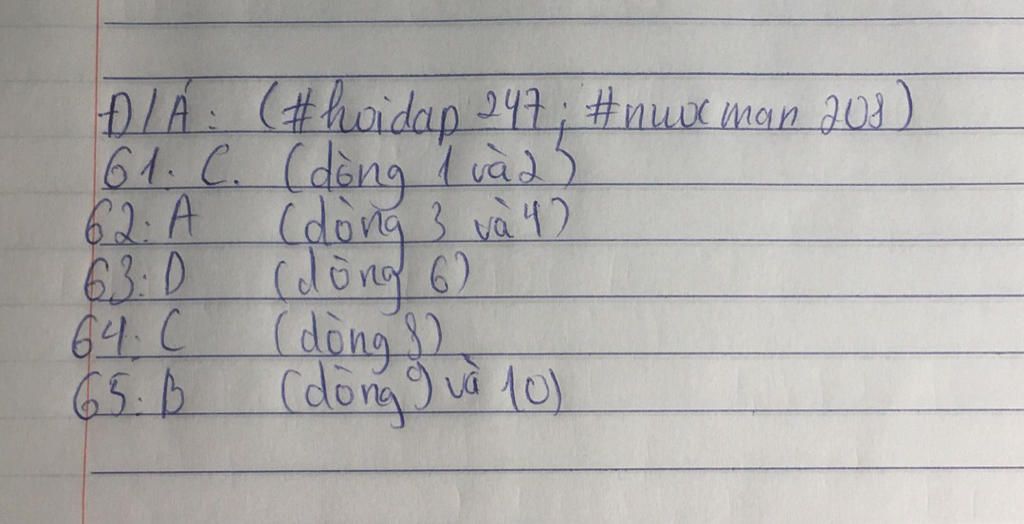 Đ/Á: (#hoidap 247; #nuocman 208)
61. C. (dòng 1 và 2)
62: A (dòng 3 và 4)
63: D (dòng 6)
64. C (dòng 8)
65: B (dòng 9 và 10)